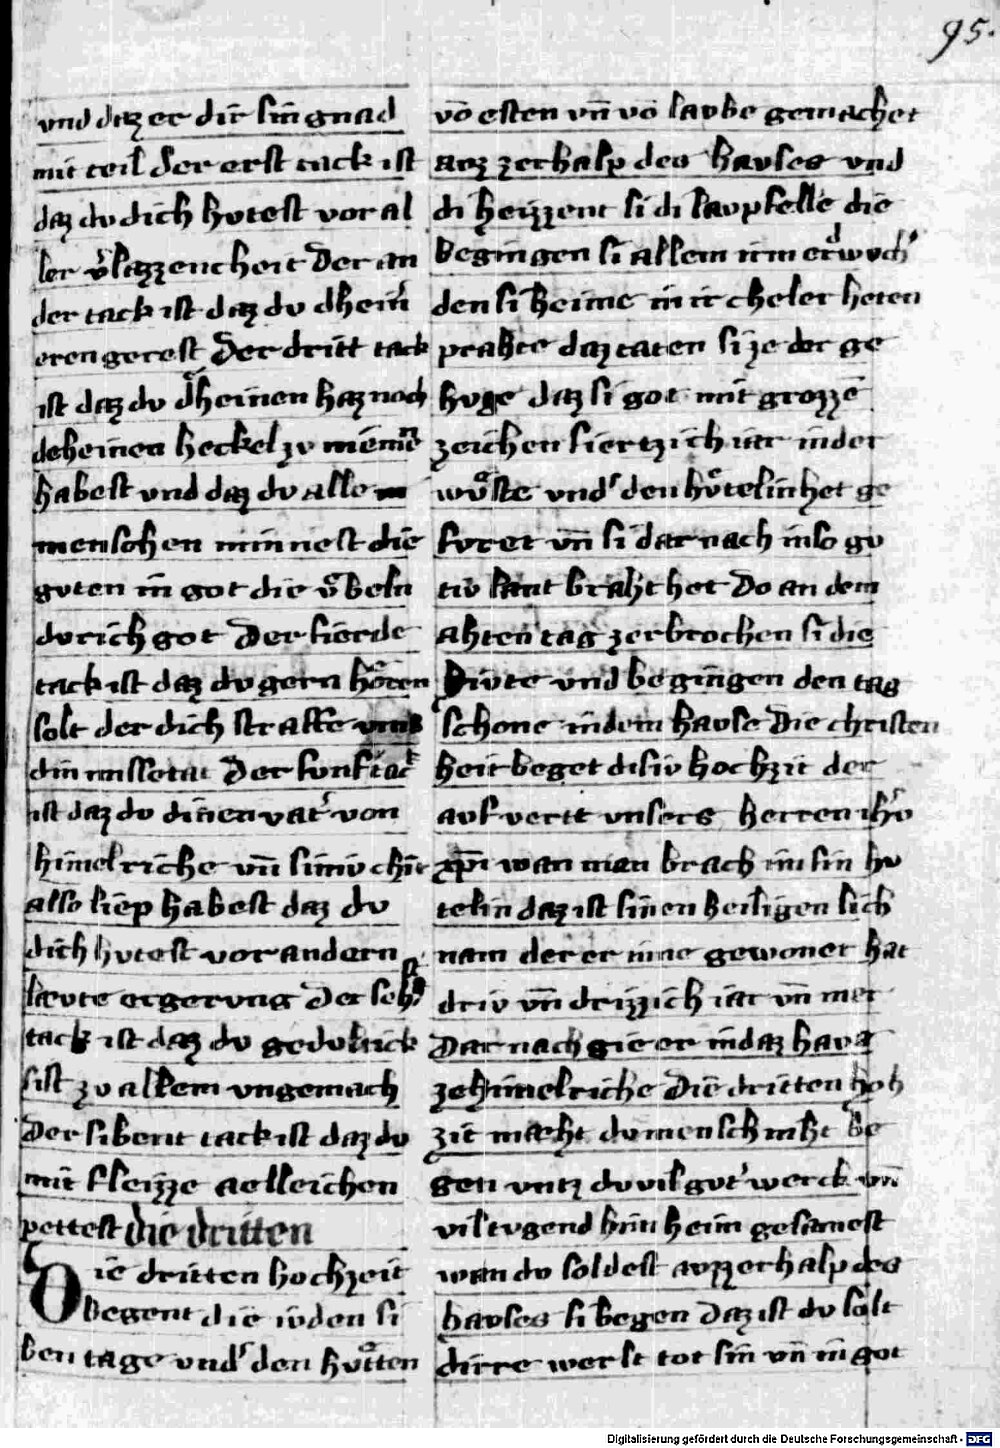 95.
und daz er dir sin gnad
mit teil der erst tack ist
daz du dich hutest vor al
ler v̾lazzencheit Der an
der tack ist daz du dhein̾
eren gerest Der dritt tack
ist daz du dheinen haz noch
deheinen heckel zv niemē
habest vnd daz dv alle
menschen minnest die
guten in got die v̊beln
durich got Der fierde
tack ist daz dv gern hoͤren
solt der dich straffe vmb
din missetat Der funft tack
ist daz dv dinen vat̾ von
himelriche vn̄ sinev chīt
also liep habest daz dv
dich hvtest vor andern
laevte ergerung Der sehst
tack ist daz dv gedultick
sist zv allem vngemach
Der sibent tack ist daz dv
mit fleizze aelleichen
pettest die dritten
Die dritten hochzeit
begent die iuden si
ben tage vnd̾ den hvͤtten
vō esten vn̄ vō laube gemachet
auz zerhalp des hauses vnd
di heizzent si di laupselle die
begingen si allem
den si heime
prahte daz taten si ze der ge
huge daz si got mit grozzē
zeichen fiertzich iar in der
wuͤste vnd̾ den huͤtelin het ge
furet vn̄ si dar nach in so gu
tiv lant braht het Do an dem
ahten tag zerbrochen si die
hivte vnd begingen den tag
schone in dem hause Die christen
heit beget disiv hochzit der
aufvertt vnsers herren ih̄u
xp̄i wan man brach im sin hv
telin daz ist sinen heiligen lich
nam der er inne gewonet hat
driv vn̄ drizzich iar vn̄ mer
Dar nach gie er in daz haus
ze himelriche Die dritten hoh
zit maht du mensch niht be
gen vntz du vil gut̾ werck vn̄
vil tugend hin heim gesamest
wan du soldest auzzerhalp des
hauses si begen Daz ist du solt
dirre werlt tot sin vn̄ in got
Digitalisierung gefördert durch die Deutsche Forschungsgemeinschaft - DFG